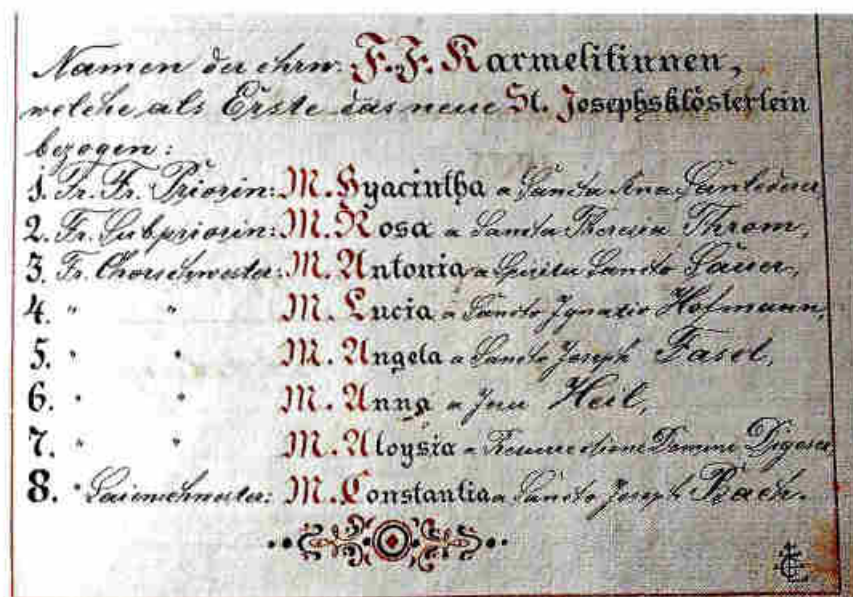 Namen der ehrw. F.F. Karmelitinnen,
welche als Erste das neue St. Josephsklösterlein
bezogen:
1. Fr. Fr. Priorin: M. Hyacintha a Sancta Ana
2. Fr. Subpriorin: M. Rosa a Sancta Theresia Throm,
3. Fr. Chorschwester: M. Antonia a Spiritu Sancto Sauer,
4. " " M. Lucia a Sancto Ignatio Hofmann,
5. " " M. Angela a Sancto Joseph Fasel,
6. " " M. Anna a Jesu Heil,
7. " " M. Aloysia a Resurrectione Domini
8. " Laienschwester: M. Constantia a Sancto Joseph Bach.